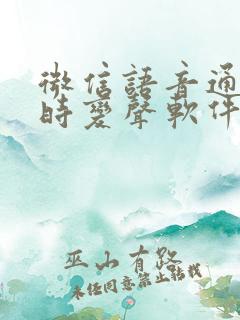 微信語音通
時變聲軟件
巫山有路
未經同意禁止轉載